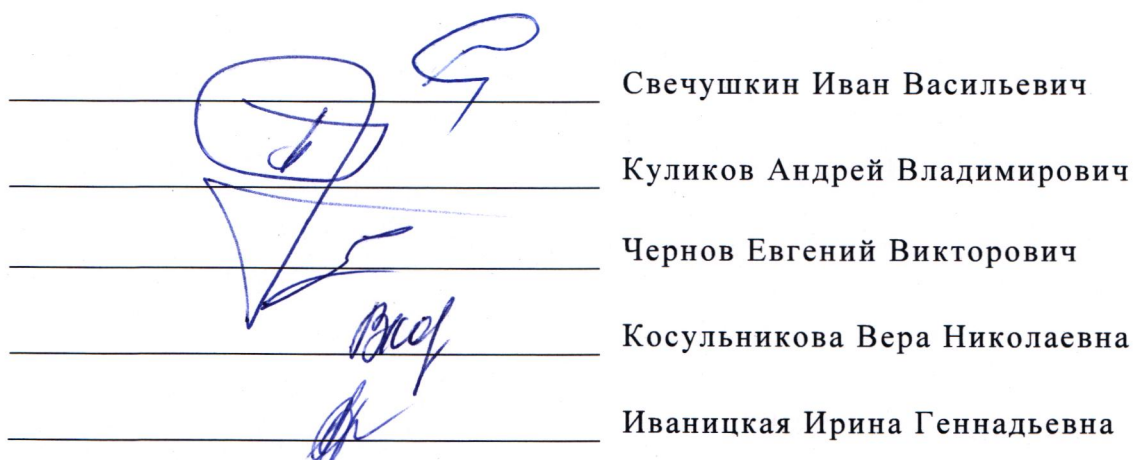 Свечушкин Иван Васильевич
Куликов Андрей Владимирович
Чернов Евгений Викторович
Косульникова Вера Николаевна
Иваницкая Ирина Геннадьевна